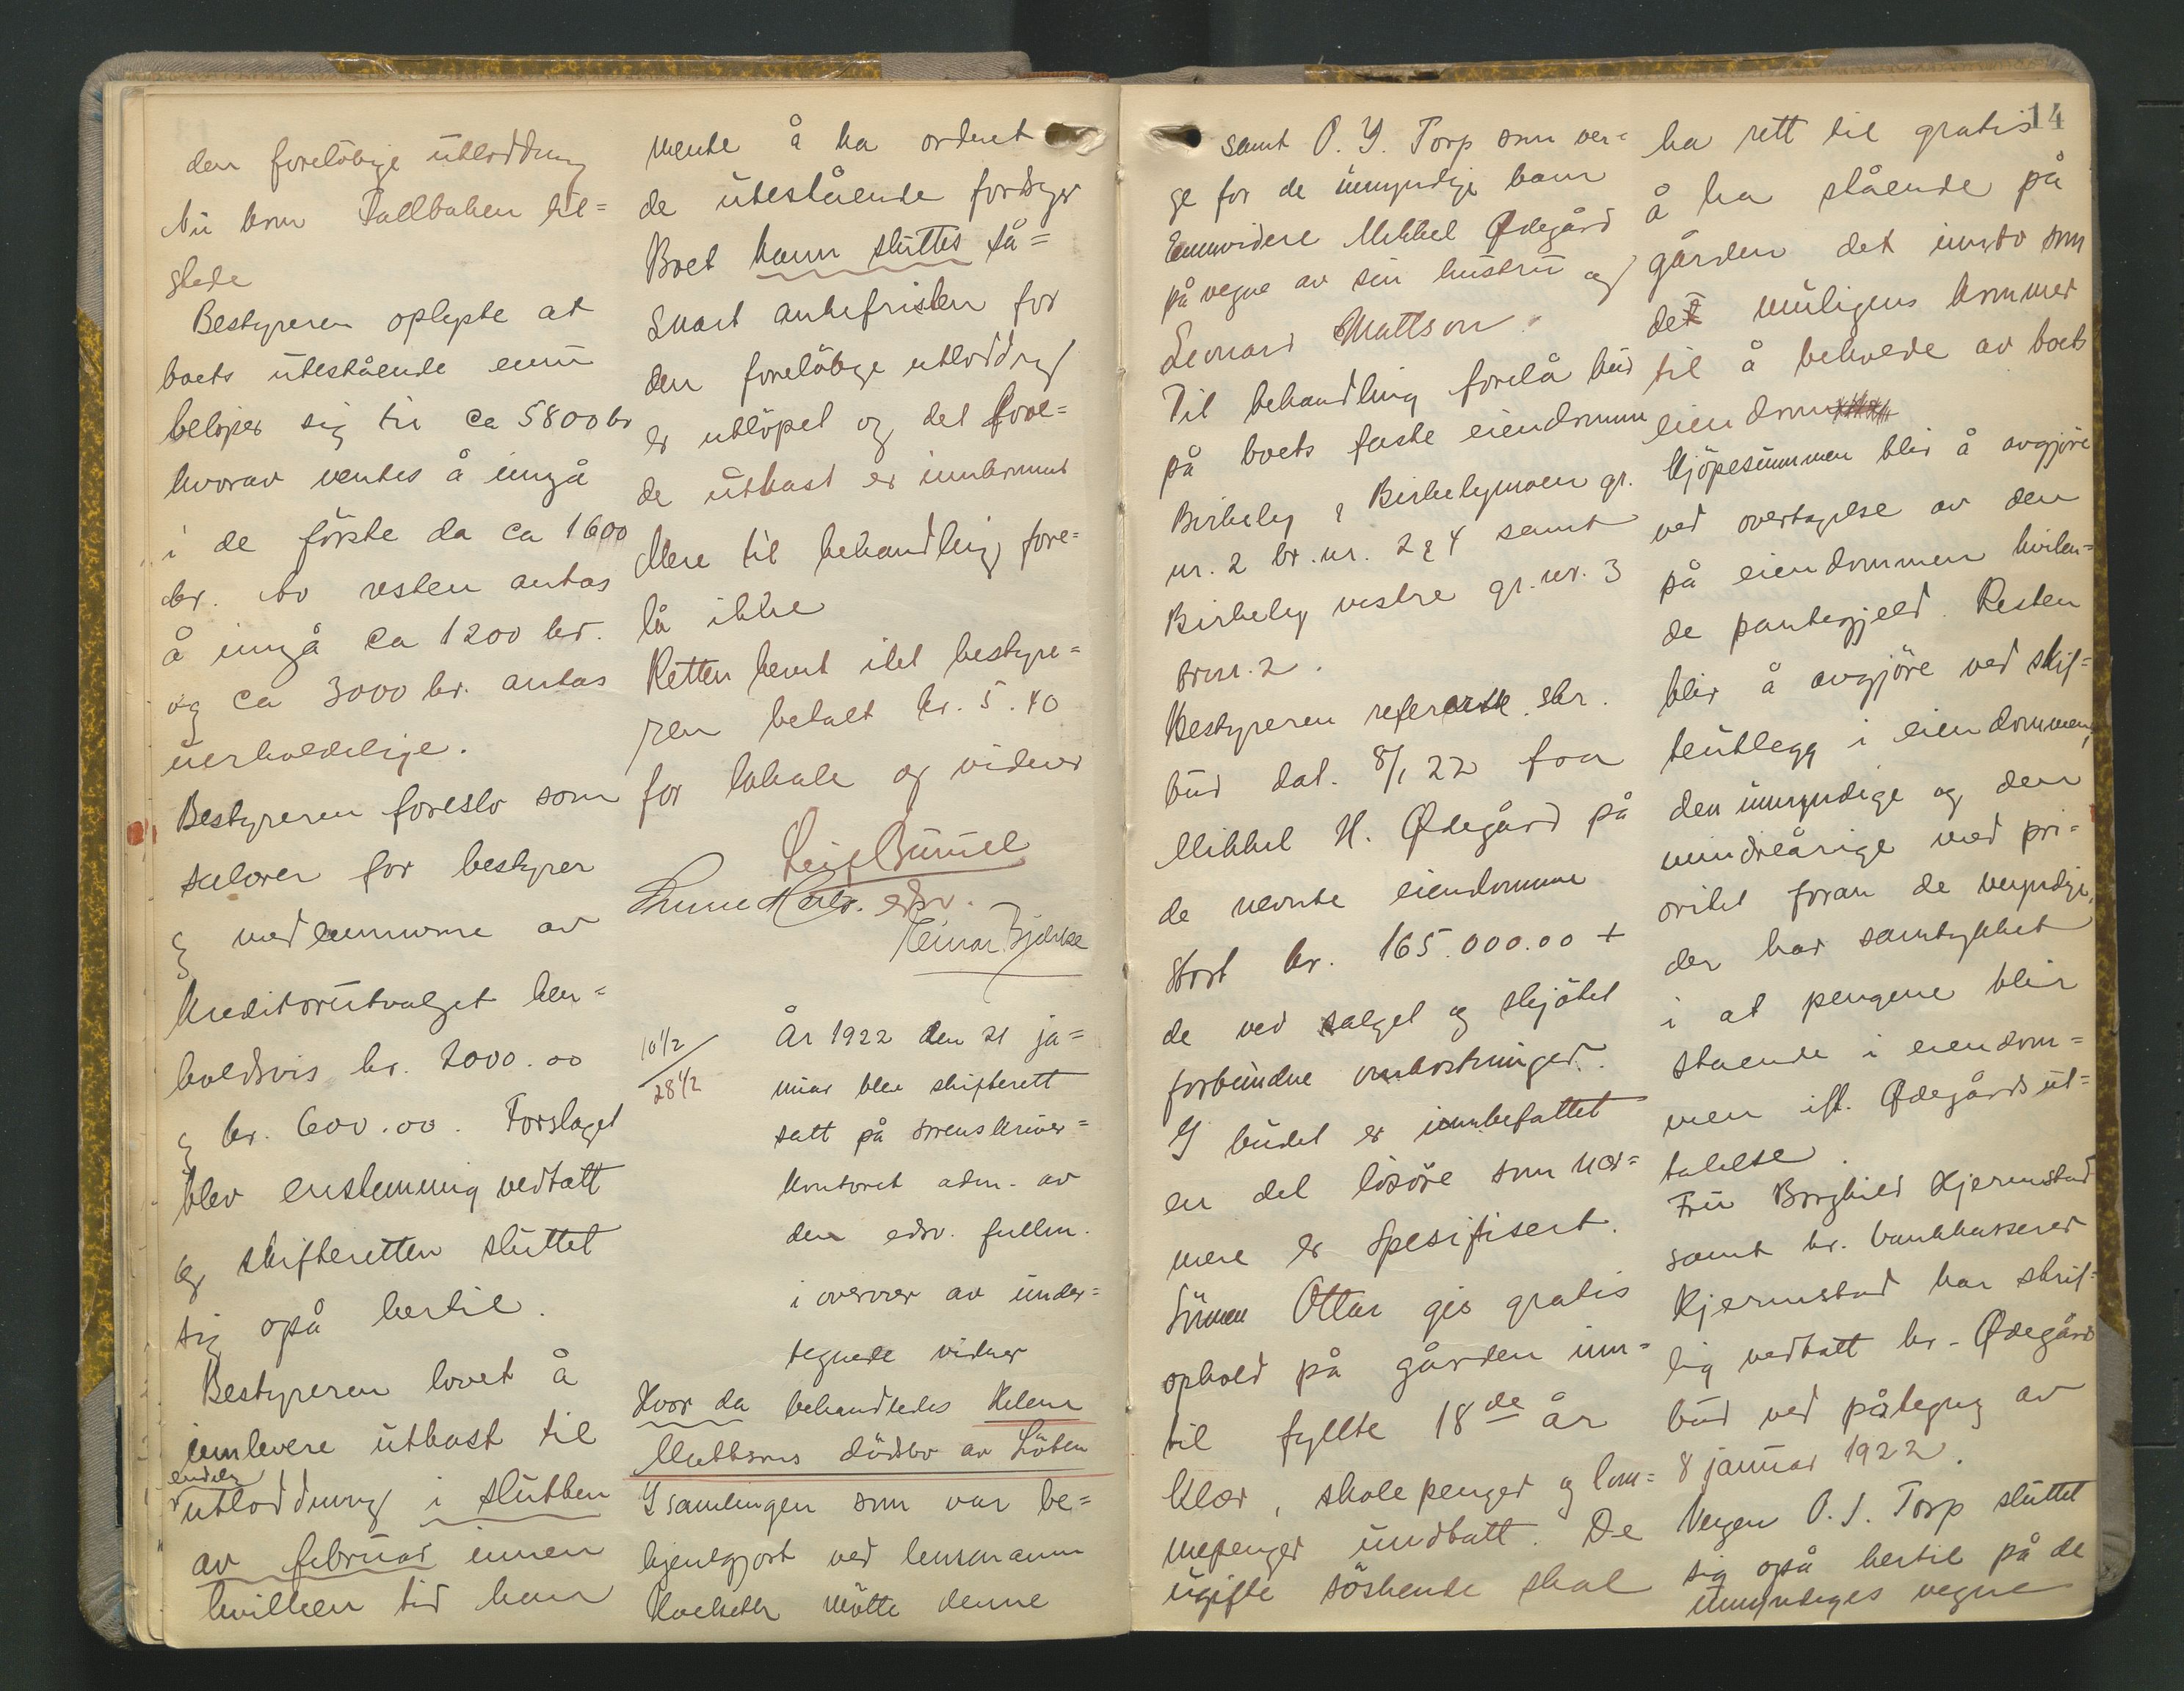 den foreløbige utloddning
Nu kom Tallbaken til=
stede
Bestyreren oplyste at
boets utestående ennu
beløper sig til ca 5800 kr
hvorav ventes å inngå
i de første da ca 1600
kr. Av resten antas
å inngå ca 1200 kr.
og ca 3000 kr. antas
uerholdelige.
Bestyreren foreslo som
salærer for bestyrer
og medlemmerne av
kreditorutvalget hen=
holdsvis kr. 2000.00
og kr. 600.00. Forslaget
blev enstemmig vedtatt
og skifteretten sluttet
sig også hertil.
Bestyreren lovet å
innlevere utkast til
endelig
utloddning i slutten
av februar innen
hvilken tid han
mente å ha ordnet
de utestående fordringer
Boet kann sluttes så=
snart ankefristen for
den foreløbige utloddning
er utløpet og det fore=
de utkast er innkommet
Mere til behandling fore=
lå ikke
Retten hevet idet bestyre=
ren betalt kr. 5.40
for lokale og vidner
Leif Bunnel
edsv.
Einar Bjerke
10 1/2
28 1/2
År 1922 den 21 ja=
nuar blev skifterett
satt på sorenskriver=
kontoret adm. av
den edsv. fullm.
i overvær av under=
tegnede vidner
Hvor da behandledes Helene
Mattsons dødsbo av Løten
I samlingen som var be=
kjentgjort ved lensmann
møtte denne
14
samt O. J. Torp som ver=
ge for de umyndige barn
Ennvidere Mikkel Ødegård
på vegne av sin hustru og
Leonard Mattson.
Til behandling forelå bud
på boets faste eiendomme
Birkeby & Birkebymoen gr.
nr. 2 br.nr. 2 & 4 samt
Birkeby vestre gr.nr. 3
br.nr. 2.
Bestyreren refererte skr.
bud dat. 8/1 22 fra
Mikkel H. Ødegård på
de nevnte eiendomme
stort kr. 165.000.00 +
de ved salget og skjøtet
forbundne omkostninger.
I budet er innbefattet
en del løsøre som nær=
mere er spesifisert.
Sønnen Ottar gis gratis
ophold på gården inn=
til fyllte 18de år
klær, skolepenger og lom=
mepenger undtatt. De
ugifte søskende skal
ha rett til gratis
å ha stående på
gården det innbo som
det muligens kommer
til å beholde av boets
eiendom
Kjøpesummen blir å avgjøre
ved overtagelse av den
på eiendommen hvilen=
de pantegjeld. Resten
blir å avgjøre ved skif=
teutlegg i eiendommen,
den umyndige og den
mindreårige med pri=
oritet foran de myndige,
der har samtykket
i at pengene blir
stående i eiendom=
men ifl. Ødegårds ut=
talelse.
Fru Borghild Kjernstad
samt hr. bankkasserer
Kjernstad har skrift=
lig vedtatt hr. Ødegårds
bud ved påtegng av
8 januar 1922.
Vergen O. J. Torp sluttet
sig også hertil på de
umyndiges vegne